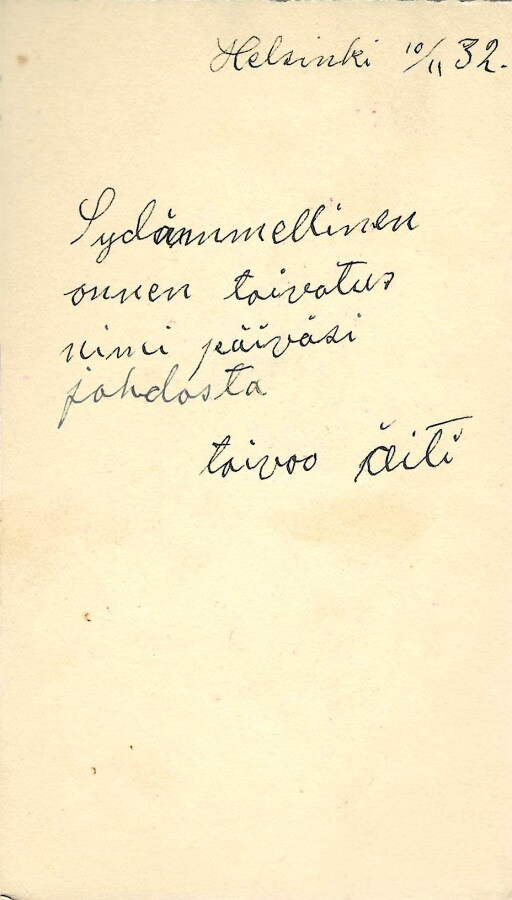 Helsinki 10/11 32.
Sydämmellinen
onnen toivotus
nimi päiväsi
johdosta
toivoo Äiti